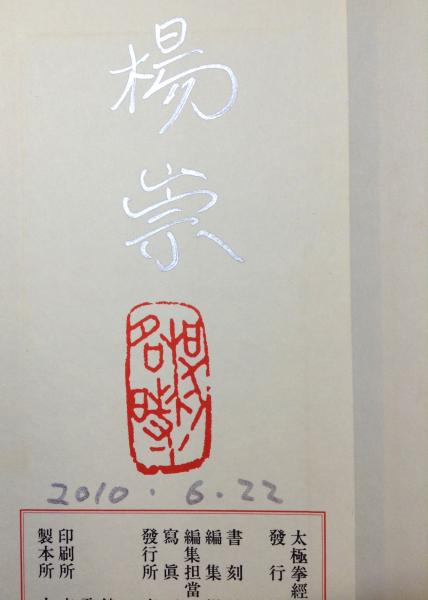 楊
崇
2010.6.22
太極拳經
發行
書刻
編集
編集担當
寫眞
發行所
印刷所
製本所